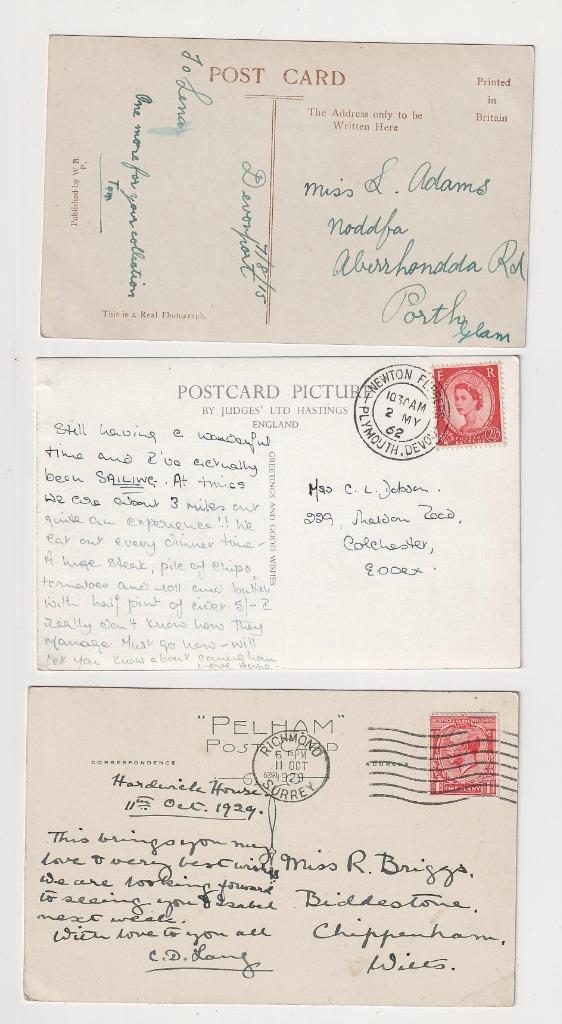 POST CARD
Printed
in
Britain
The Address only to be
Written Here
To Lena
One more for your collection
Tom
Devonport
7/8/15
Published by W. B.
P.
This is a Real Photograph.
Miss L. Adams
Noddfa
Aberrhondda Rd
Porth
Glam
POSTCARD PICTUR
BY JUDGES' LTD HASTINGS
ENGLAND
GREETINGS AND GOOD WISHES
NEWTON FERRERS
10 30 AM
2 MY
62
PLYMOUTH. DEVON
E R
POSTAGE
2½D
Still having a wonderful
time and I've actually
been SAILING. At times
we are about 3 miles out
quite an experience!! We
eat out every dinner time -
A huge steak, pile of chips,
tomatoes and roll and butter
with half pint of cider 5/- I
really don't know how they
manage. Must go now - will
let you know about coming home
Love Anne.
C. L. Dobson.
Road,
Colchester,
Essex.
"PELHAM"
POST CARD
CORRESPONDENCE
ADDRESS
RICHMOND
6 15 PM
11 OCT
1929
SURREY
ONE PENNY
Hardwick House.
11th Oct. 1929.
This brings you my
love & very best wishes
We are looking forward
to seeing you & Isabel
next week.
With love to you all
C. D. Lang
Miss R. Briggs.
Biddestone,
Chippenham.
Wilts.